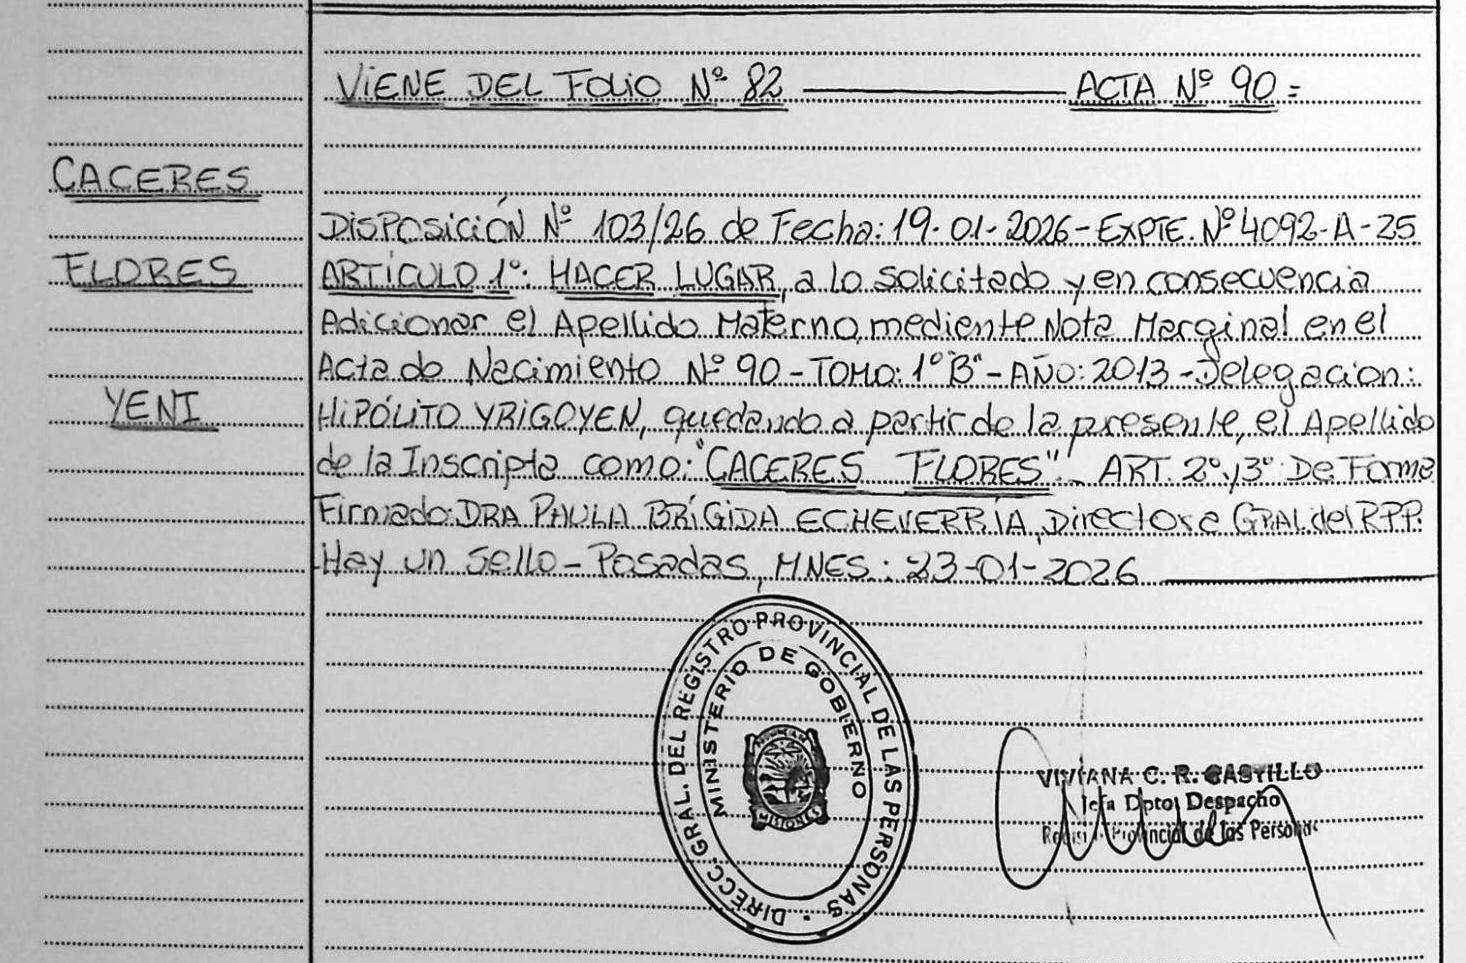 VIENE DEL FOLIO Nº 82 ——— ACTA Nº 90 =
CACERES
FLORES
YENI
DISPOSICIÓN Nº 103/26 de Fecha: 19-01-2026 - EXPTE. Nº 4092-A-25
ARTÍCULO 1º: HACER LUGAR, a lo solicitado y en consecuencia
Adicionar el Apellido Materno, mediente Nota Marginal en el
Acta de Nacimiento Nº 90 - TOMO: 1º "B" - AÑO: 2013 - Delegacion:
HIPÓLITO YRIGOYEN, quedando a partir de la presente, el Apellido
de la Inscripta como: "CACERES FLORES". ART. 2º y 3º De Forma
Firmado: DRA PAULA BRÍGIDA ECHEVERRÍA, Directora GRAL del RPP.
Hay un sello - Posadas, MNES.: 23-01-2026
DIRECC. GRAL. DEL REGISTRO PROVINCIAL DE LAS PERSONAS
MINISTERIO DE GOBIERNO
MISIONES
VIVIANA C. R. CASTILLO
Jefa Dpto. Despacho
Registro Provincial de las Personas